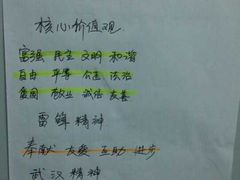 核心价值观
富强 民主 文明 和谐
自由 平等 公正 法治
爱国 敬业 诚信 友善
雷锋精神
奉献 友爱 互助 进步
武汉精神